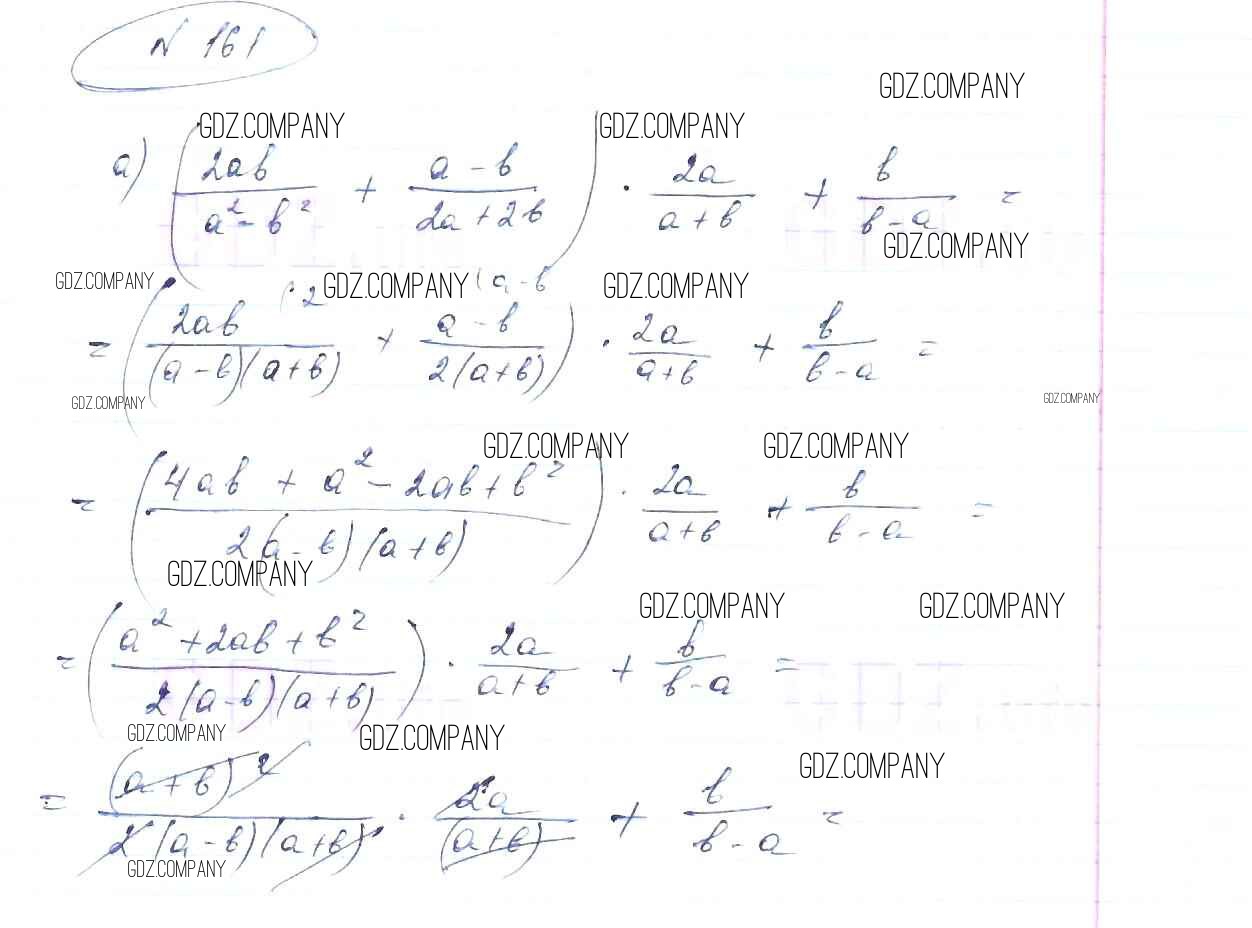 N 161
GDZ.COMPANY
GDZ.COMPANY GDZ.COMPANY
а) (2ab/(a² - b²) + (a - b)/(2a + 2b)) · 2a/(a + b) + b/(b - a) =
GDZ.COMPANY
GDZ.COMPANY · 2 GDZ.COMPANY (a - b GDZ.COMPANY
= (2ab/((a - b)(a + b)) + (a - b)/(2(a + b))) · 2a/(a + b) + b/(b - a) =
GDZ.COMPANY GDZ.COMPANY
GDZ.COMPANY GDZ.COMPANY
= ((4ab + a² - 2ab + b²)/(2(a - b)(a + b))) · 2a/(a + b) + b/(b - a) =
GDZ.COMPANY
GDZ.COMPANY GDZ.COMPANY
= ((a² + 2ab + b²)/(2(a - b)(a + b))) · 2a/(a + b) + b/(b - a) =
GDZ.COMPANY GDZ.COMPANY
GDZ.COMPANY
= (a + b)²/(2(a - b)(a + b)) · 2a/(a + b) + b/(b - a) =
GDZ.COMPANY